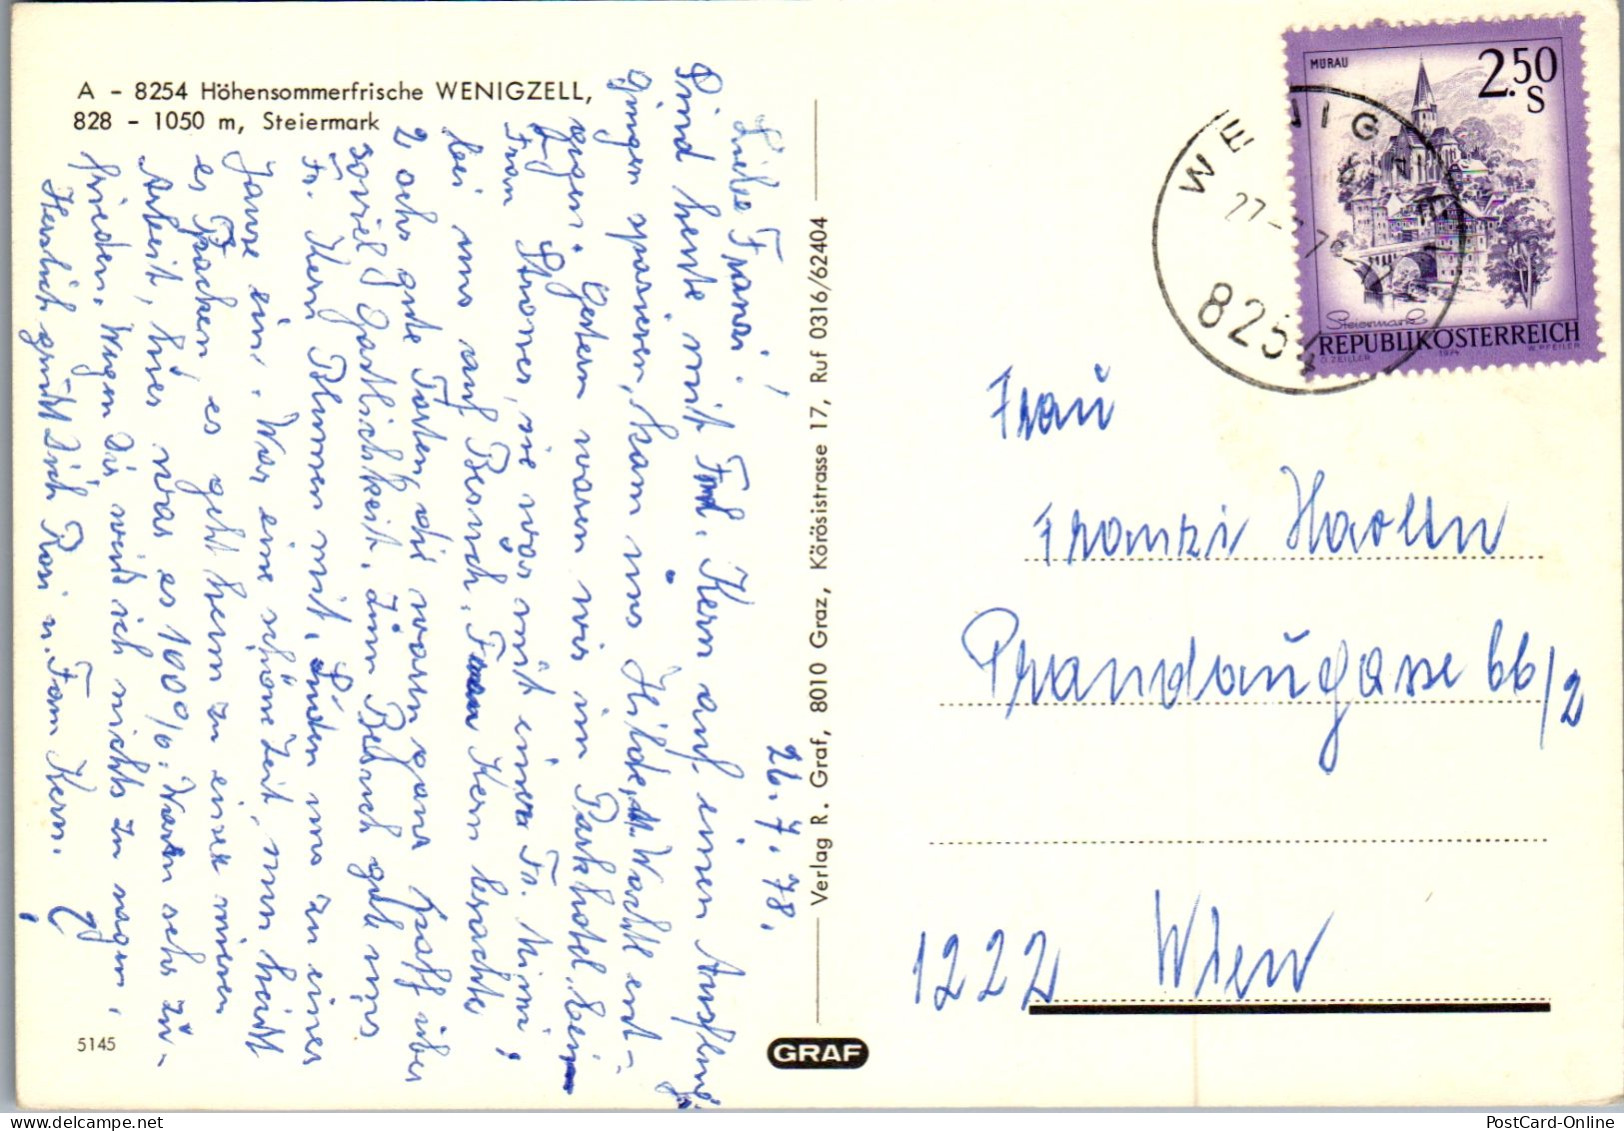 A - 8254 Höhensommerfrische WENIGZELL,
828 - 1050 m, Steiermark
26. 7. 78.
Liebe Franzi!
Sind heute mit Frl. Kern auf einen Ausflug
gingen spazieren, kam uns Hilde u. Wastl ent-
gegen. Gestern waren wir im Parkhotel bei
Frau Stroner, sie war mit einer Fr. Mimi,
bei uns auf Besuch. Frau Kern brachte
2 sehr gute Torten, die waren ganz paff über
soviel Gastlichkeit. Zum Besuch gab uns
Fr. Kern Blumen mit. Luden uns zu einer
Jause ein. War eine schöne Zeit, nun heißt
es Packen, es geht heim zu einer
Arbeit, hier war es 100%. Waren sehr zu-
frieden. Wegen Dir wird sich nichts zu sagen.
Herzlich grüßt Dich Rosi u. Fam Kern.
5145
Verlag R. Graf, 8010 Graz, Körösistrasse 17, Ruf 0316/62404
GRAF
MURAU
2.50
S
Steiermark
REPUBLIK ÖSTERREICH
O. ZEILLER 1974 W. PFEILER
WENIGZELL
8254
Frau
Franzi
Prandaugasse 66/2
1222 Wien
PostCard-Online